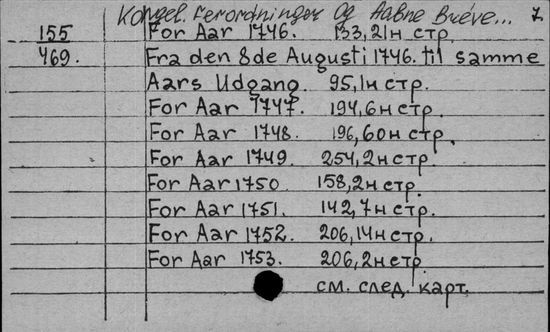 Kongel. Ferordninger og Aabne Bréve... 7
155 For Aar 1746. 133,21н стр.
469. Fra den 8de Augusti 1746. til samme
Aars Udgang. 95,1н стр.
For Aar 1747. 194,6н стр.
For Aar 1748. 196,60н стр.
For Aar 1749. 254,2н стр.
For Aar 1750 158,2н стр.
For Aar 1751. 142,7н стр.
For Aar 1752. 206,14н стр.
For Aar 1753. 206,2н стр.
см. след. карт.